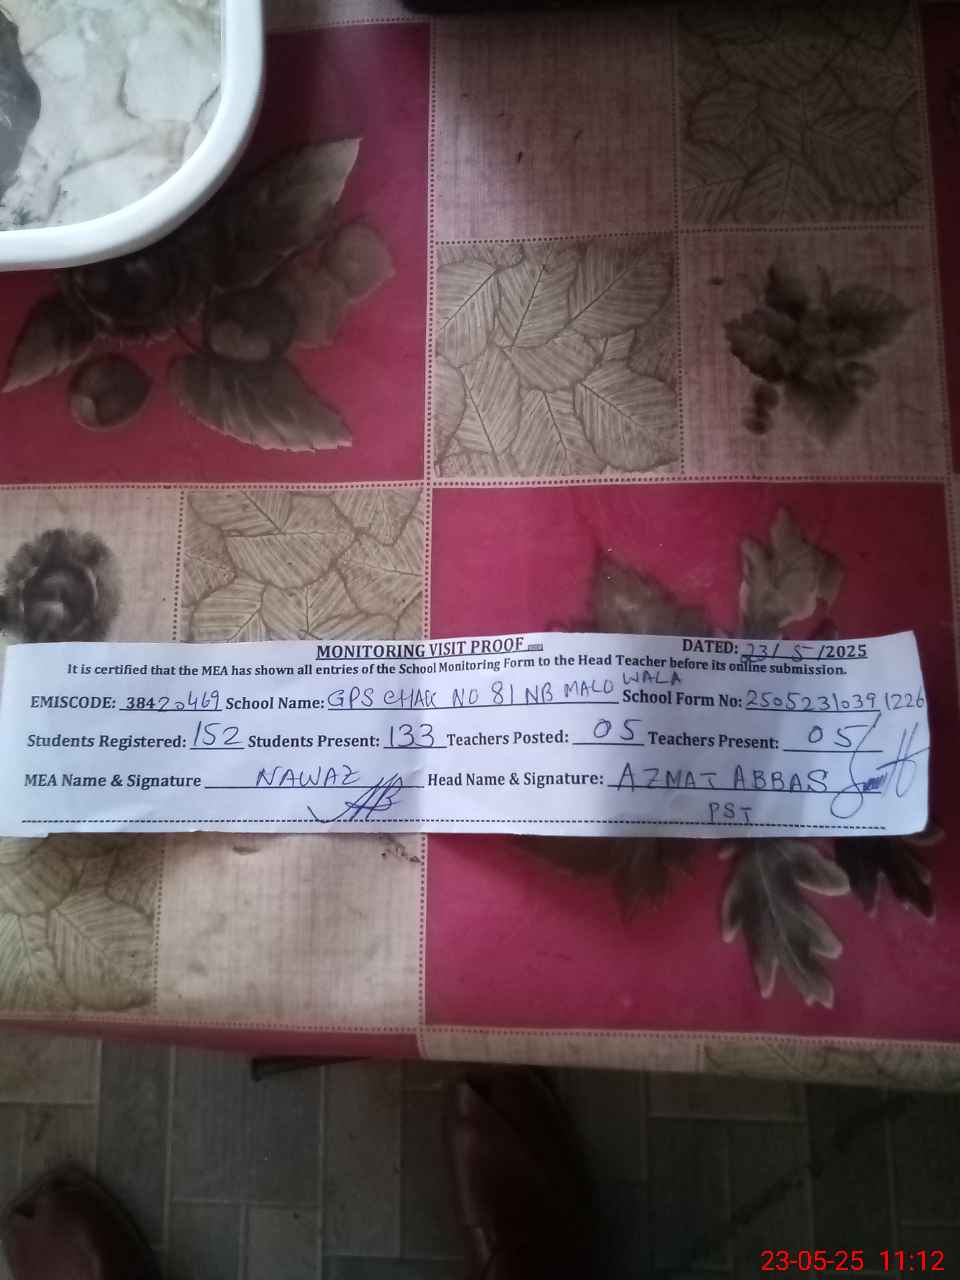 MONITORING VISIT PROOF DATED: 23/5/2025
It is certified that the MEA has shown all entries of the School Monitoring Form to the Head Teacher before its online submission.
EMISCODE: 38420469 School Name: GPS CHAK NO 81 NB MALO WALA School Form No: 25052310391226
Students Registered: 152 Students Present: 133 Teachers Posted: 05 Teachers Present: 05
MEA Name & Signature NAWAZ Head Name & Signature: AZMAT ABBAS
PST
23-05-25 11:12